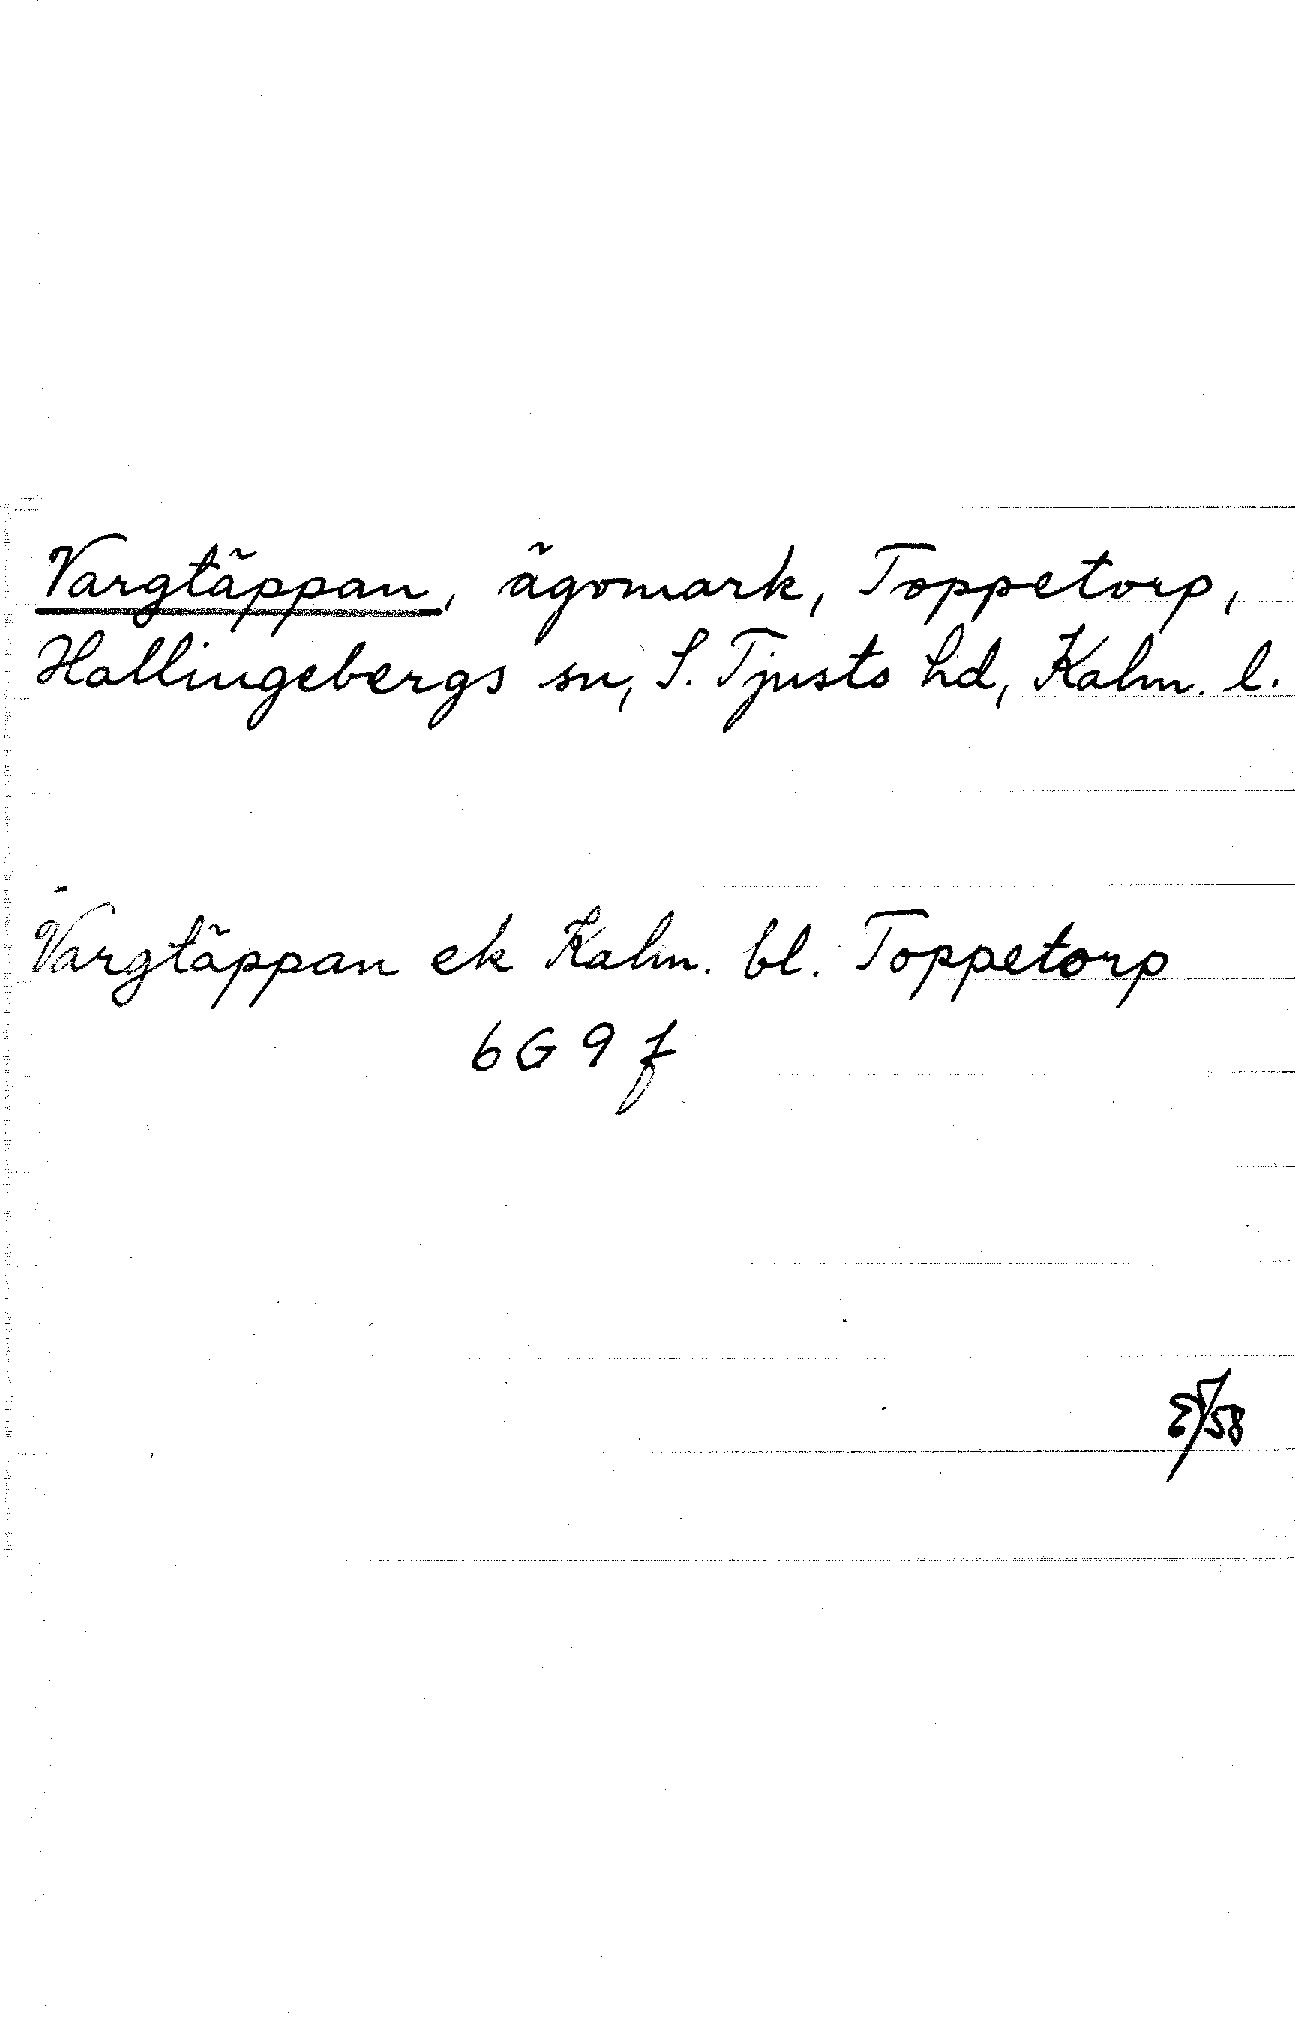 Vargtäppan, ägomark, Toppetorp,
Hallingebergs sn, S. Tjusts hd, Kalm. l.
Vargtäppan ek Kalm. bl. Toppetorp
6G9f